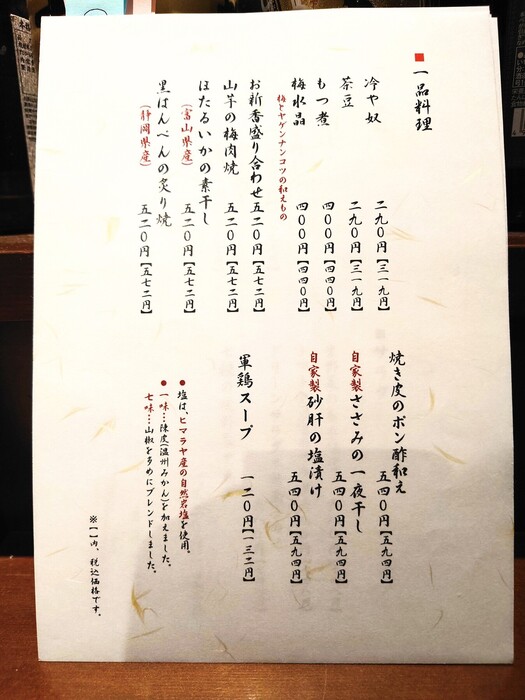 ■一品料理
冷や奴 二九〇円【三一九円】
茶豆 二九〇円【三一九円】
もつ煮 四〇〇円【四四〇円】
梅水晶 四〇〇円【四四〇円】
梅とヤゲンナンコツの和えもの
お新香盛り合わせ 五二〇円【五七二円】
山芋の梅肉焼 五二〇円【五七二円】
ほたるいかの素干し 五二〇円【五七二円】
(富山県産)
黒はんぺんの炙り焼 五二〇円【五七二円】
(静岡県産)
焼き皮のポン酢和え 五四〇円【五九四円】
自家製ささみの一夜干し 五四〇円【五九四円】
自家製砂肝の塩漬け 五四〇円【五九四円】
軍鶏スープ 一二〇円【一三二円】
●塩は、ヒマラヤ産の自然岩塩を使用。
●一味…陳皮(温州みかん)を加えました。
●七味…山椒を多めにブレンドしました。
※【 】内、税込価格です。